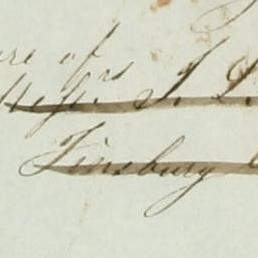 re of
Messrs. J. L
Finsbury C